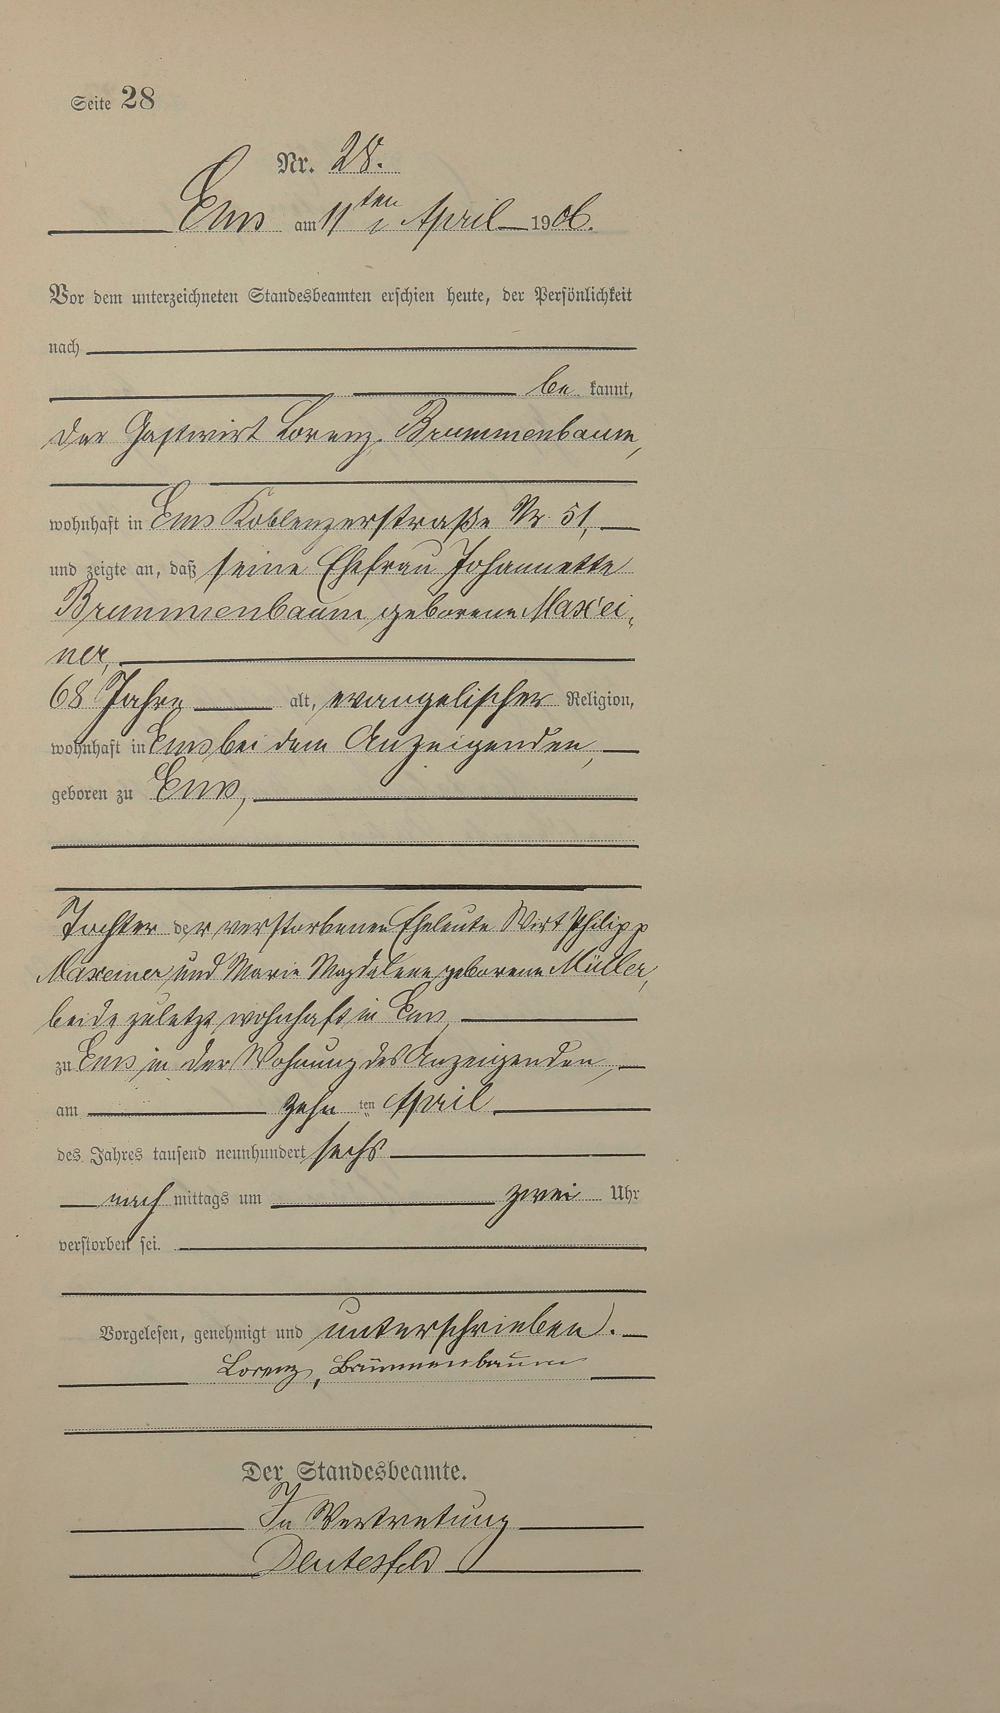 Seite 28
Nr. 28.
Ems am 11ten April 1906.
Vor dem unterzeichneten Standesbeamten erschien heute, der Persönlichkeit
nach
be kannt,
der Gastwirt Lorenz Brummenbaum,
wohnhaft in Ems Koblenzerstraße Nr 51,
und zeigte an, daß seine Ehefrau Johannette
Brummenbaum geborene Maxei-
ner,
68 Jahre alt, evangelischer Religion,
wohnhaft in Ems bei dem Anzeigenden,
geboren zu Ems,
Tochter der verstorbenen Eheleute Wirt Philipp
Maxeiner und Marie Magdalene geborene Müller,
beide zuletzt wohnhaft in Ems,
zu Ems in der Wohnung des Anzeigenden,
am zehn ten April
des Jahres tausend neunhundert sechs
nach mittags um zwei Uhr
verstorben sei.
Vorgelesen, genehmigt und unterschrieben.
Lorenz, Brummenbaum
Der Standesbeamte.
In Vertretung